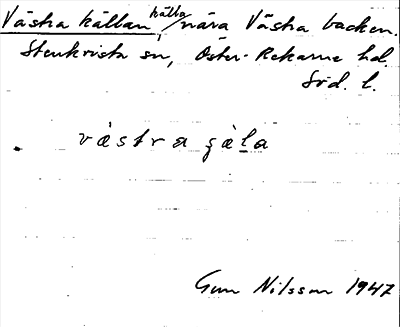 Västra källan, källa nära Västra backen.
Stenkvista sn, Öster-Rekarne hd.
Söd. l.
västra gäla
Gun Nilsson 1947